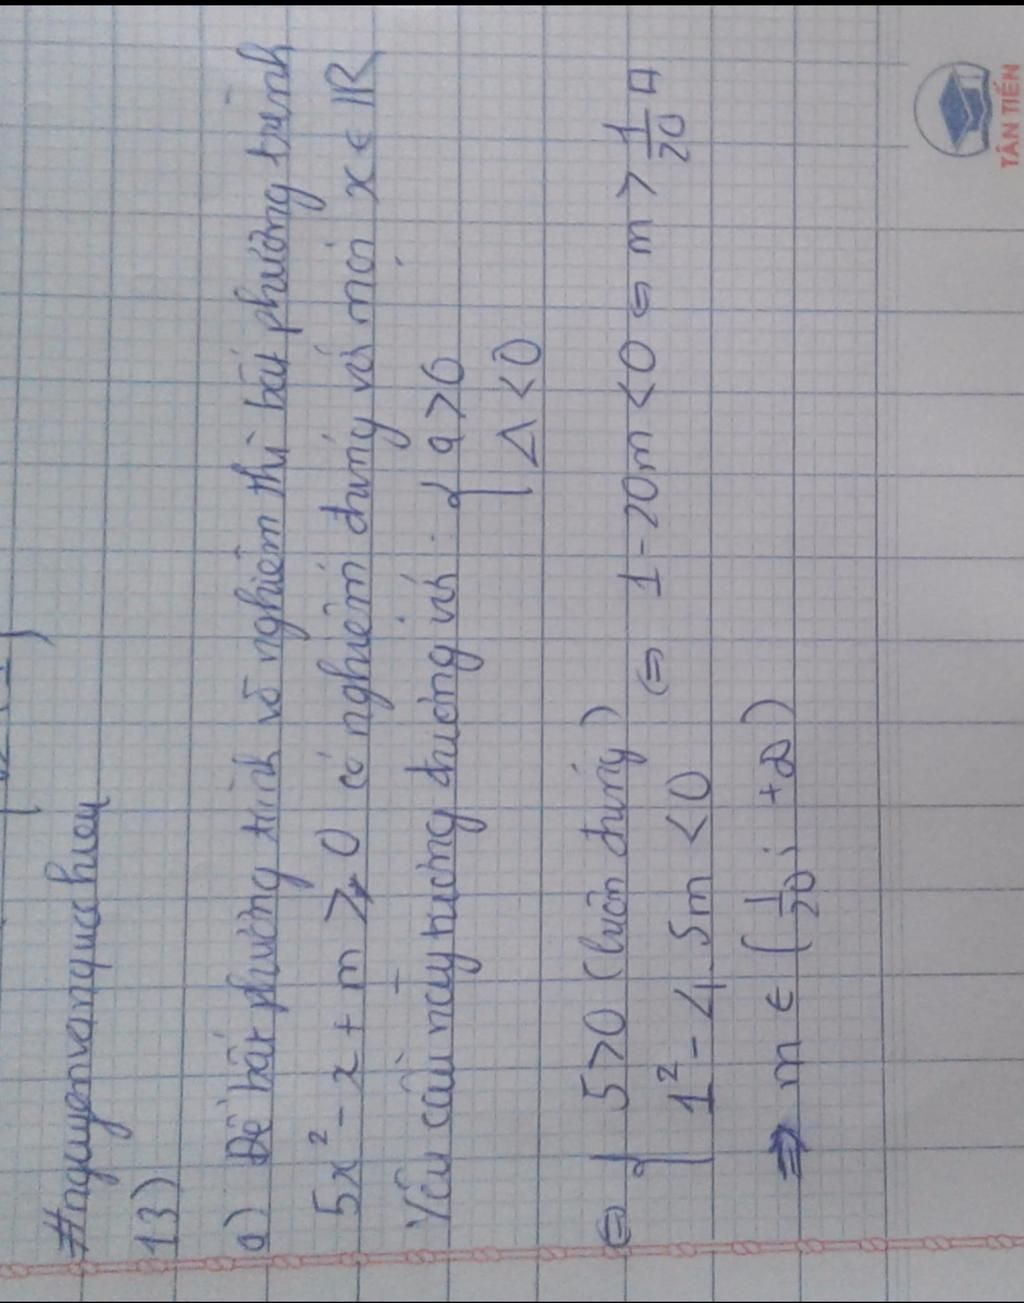 #nguyenvanquochieu
13)
a) Để bất phương trình vô nghiệm thì bất phương trình
5x² - x + m ≥ 0 có nghiệm đúng với mọi x ∈ ℝ
Yêu cầu này tương đương với: { a > 0
Δ < 0
⇔ { 5 > 0 (luôn đúng)
1² - 4.5m < 0 ⇔ 1 - 20m < 0 ⇔ m > 1/20 □
⇒ m ∈ (1/20; +∞)
TÂN TIẾN